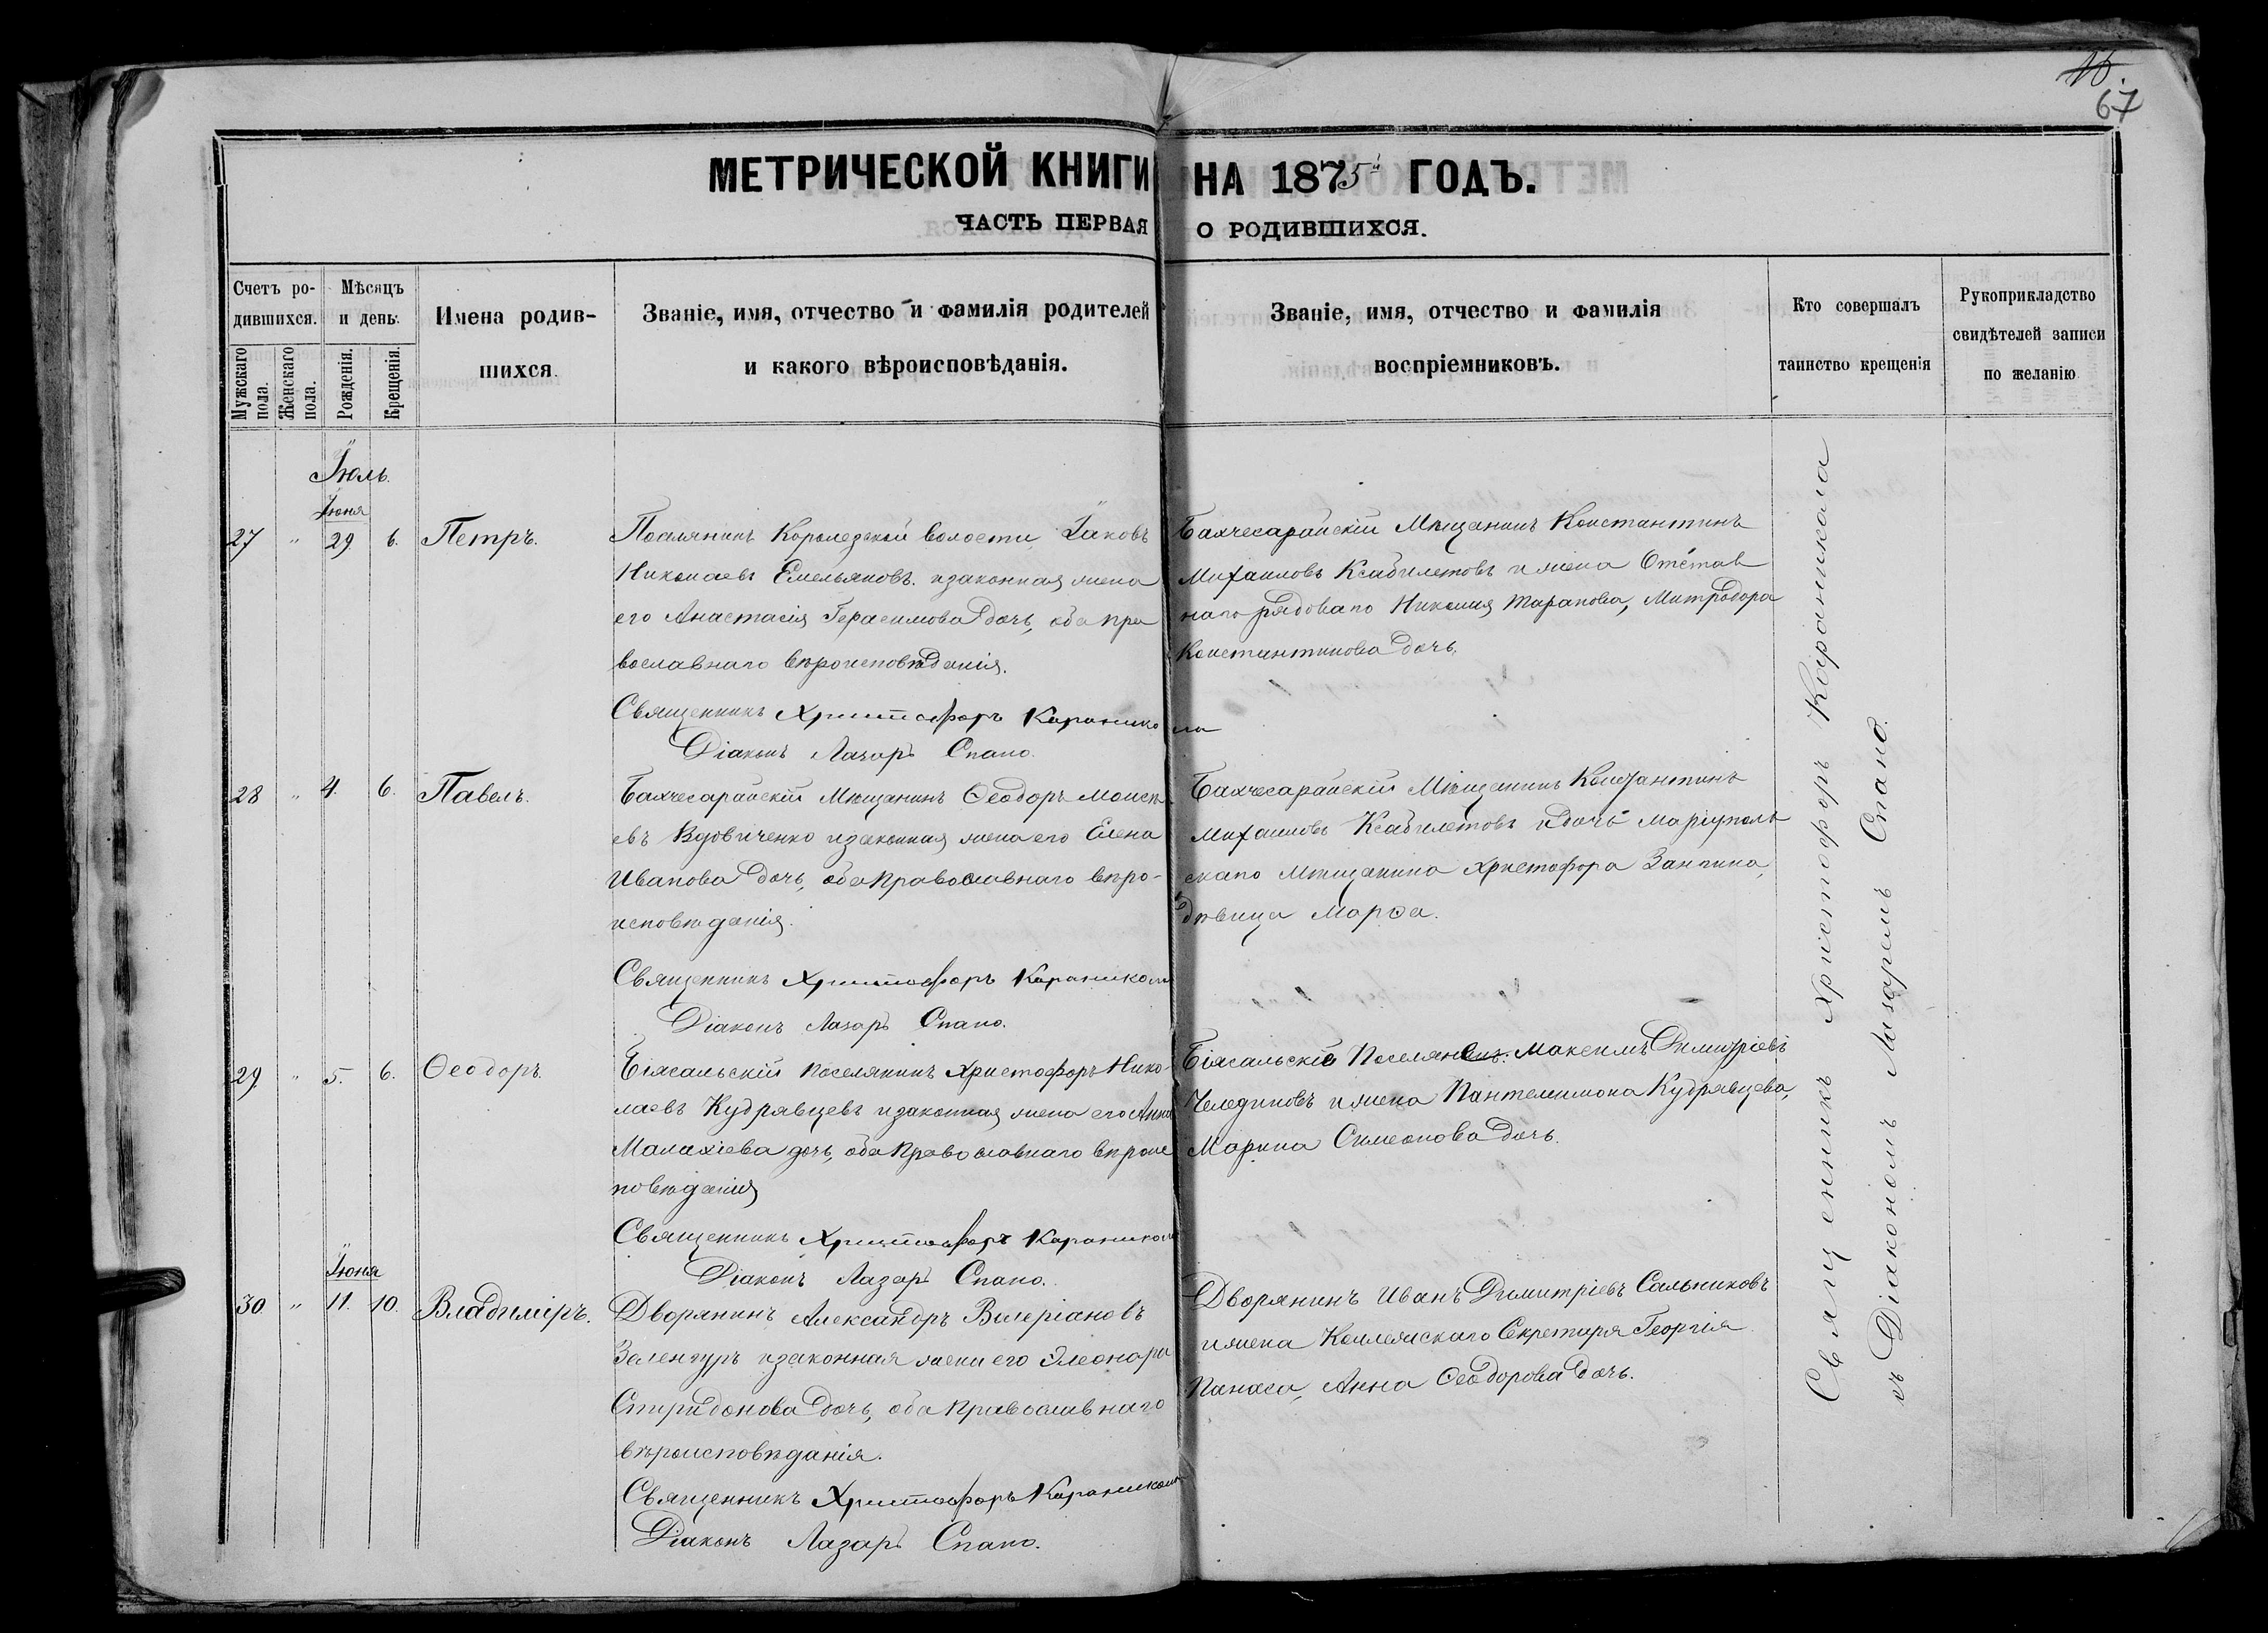 16.
67
МЕТРИЧЕСКОЙ КНИГИ НА 1875й ГОДЪ.
ЧАСТЬ ПЕРВАЯ О РОДИВШИХСЯ.
Счетъ ро-
дившихся.
Мужскаго пола.
Женскаго пола.
Мѣсяцъ
и день.
Рожденія.
Крещенія.
Имена родив-
шихся.
Званіе, имя, отчество и фамилія родителей
и какого вѣроисповѣданія.
Званіе, имя, отчество и фамилія
воспріемниковъ.
Кто совершалъ
таинство крещенія
Рукоприкладство
свидѣтелей записи
по желанію
Іюль.
Іюня
27 " 29. 6. Петръ.
Поселянинъ волости, Іаковъ
Николаевъ Емельяновъ. и законная жена
его Анастасія Герасимова дочь, оба пра
вославнаго вѣроисповѣданія.
Священникъ Христофоръ Караникола
Діаконъ Лазарь Спано.
Бахчесарайскій Мѣщанинъ Константинъ
Михаиловъ и жена Отстав
наго рядоваго Николая Тарапова, Митродора
Константинова дочь.
28 " 4. 6. Павелъ.
Бахчесарайскій Мѣщанинъ Ѳеодоръ Моисѣ
евъ Вдовиченко и законная жена его Елена
Иванова дочь, оба православнаго вѣро-
исповѣданія.
Священникъ Христофоръ Караникола
Діаконъ Лазарь Спано.
Бахчесарайскій Мѣщанинъ Константинъ
Михаиловъ и дочь Маріуполь
скаго Мѣщанина Христофора
дѣвица Марѳа.
29 " 5. 6. Ѳеодоръ.
Біясальскій поселянинъ Христофоръ Нико-
лаевъ Кудрявцевъ и законная жена его Анна
Малахіева дочь, оба православнаго вѣроис
повѣданія
Священникъ Христофоръ Караникола
Діаконъ Лазарь Спано.
Біясальскій Поселянинъ. Максимъ Димитріевъ
Челединовъ и жена Пантелимона Кудрявцева,
Марина Симеонова дочь.
Іюня
30 " 11. 10. Владиміръ.
Дворянинъ Александръ Валеріановъ
и законная жена его Элеонора
Спиридонова дочь, оба православнаго
вѣроисповѣданія.
Священникъ Христофоръ Караникола
Діаконъ Лазарь Спано.
Дворянинъ Иванъ Димитріевъ Сальниковъ
и жена Коллежскаго Секретаря Георгія
Панаса, Анна Ѳеодорова дочь.
Священникъ Христофоръ Караникола
съ Діакономъ Лазаремъ Спано.